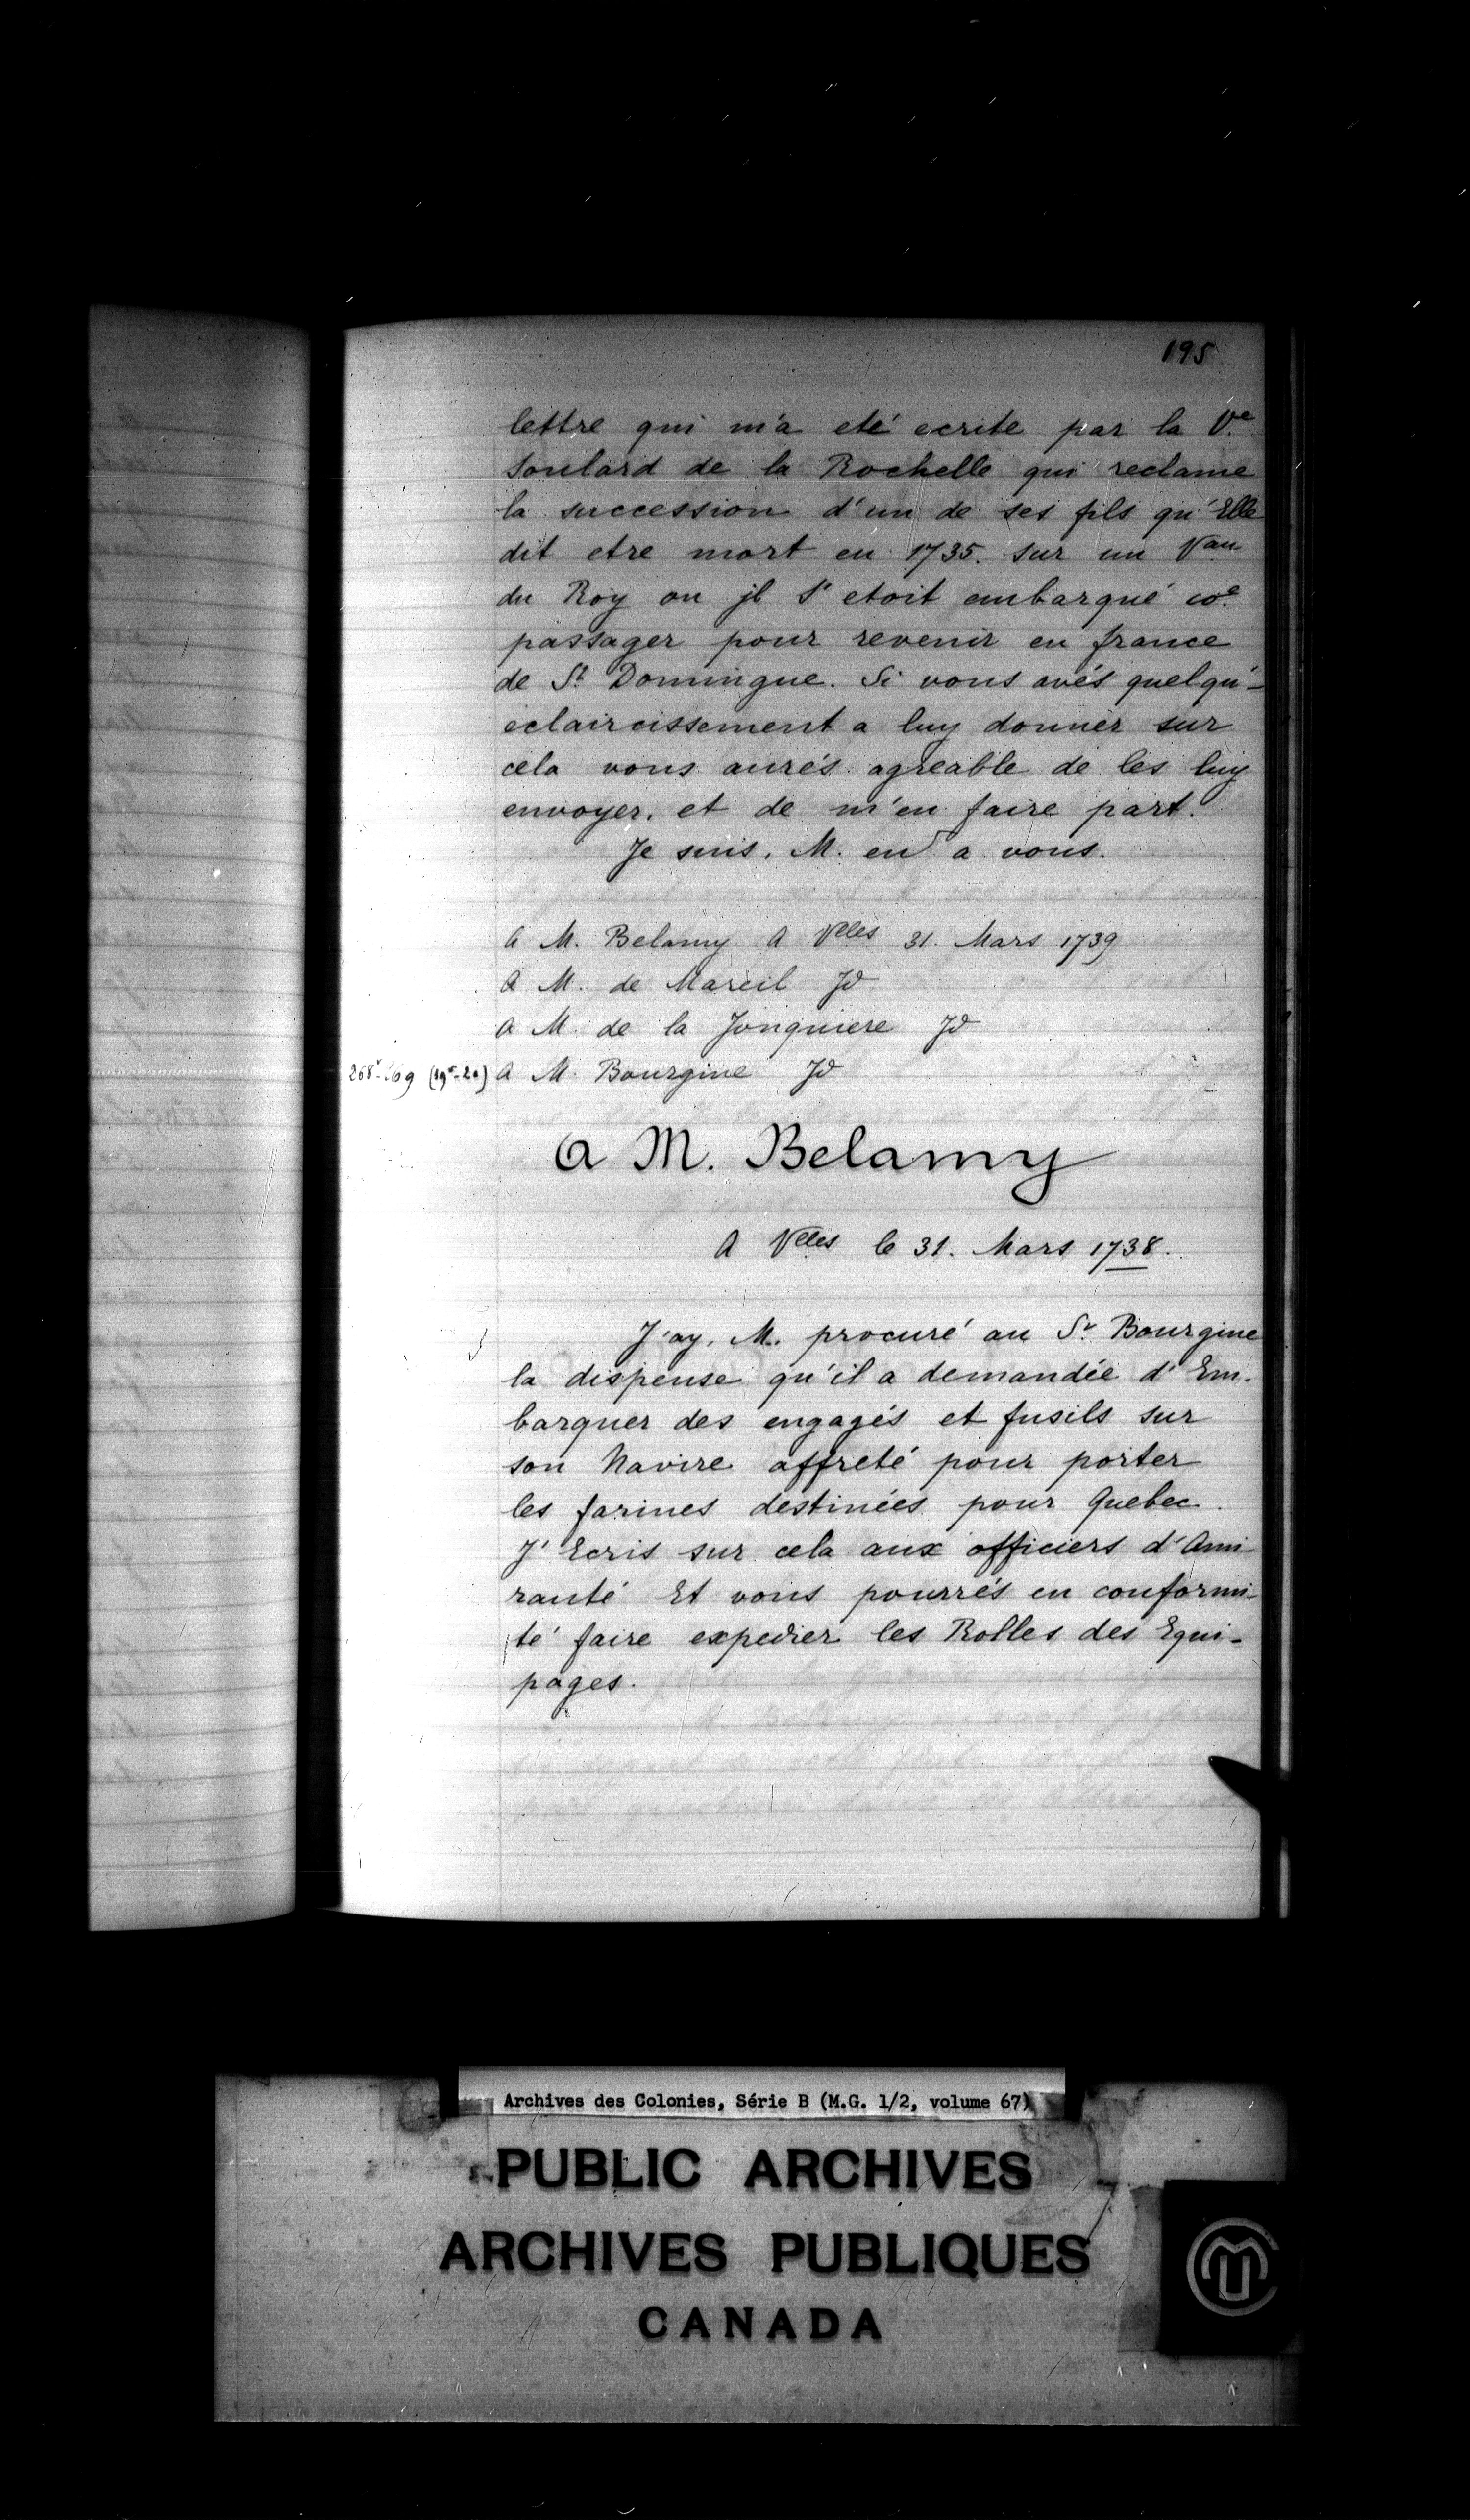 195
lettre qui m'a eté ecrite par la Ve
Soulard de la Rochelle qui reclame
la succession d'un de ses fils qu'Elle
dit etre mort en 1735. sur un Vau
du Roy ou jl s'etoit embarqué coe
passager pour revenir en france
de St Domingue. Si vous avés quelqu'-
eclaircissement a luy donner sur
cela vous aurés agreable de les luy
envoyer, et de m'en faire part.
Je suis, M. en a vous.
A M. Belamy A Vlles 31. Mars 1739
A M. de Mareil Jd
A M. de la Jonquiere Jd
A M. Bourgine Jd
A M. Belamy
A Vlles le 31. Mars 1738.
J'ay, M. procuré au Sr Bourgine
la dispense qu'il a demandée d'Em-
barquer des engagés et fusils sur
son Navire affreté pour porter
les farines destinées pour Quebec.
J'Ecris sur cela aux officiers d'Ami-
rauté Et vous pourrés en conformi-
té faire expedier les Rolles des Equi-
pages.
Archives des Colonies, Série B (M.G. 1/2, volume 67)
PUBLIC ARCHIVES
ARCHIVES PUBLIQUES
CANADA